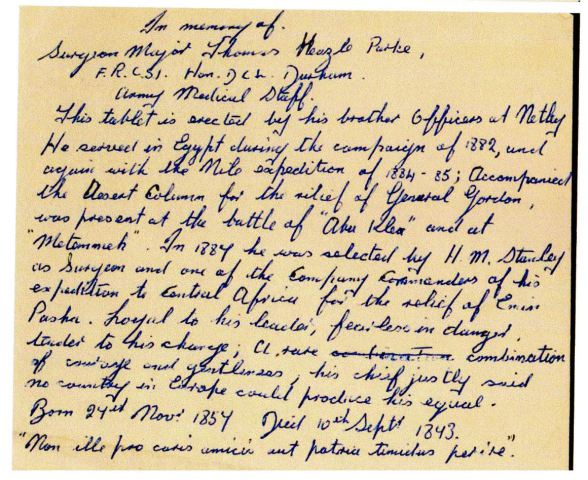 In memory of.
Surgeon Major Thomas Heazle Parke,
F.R.C.S.I. Hon. D.C.L. Durham.
Army Medical Staff
This tablet is erected by his brother Officers at Netley
He served in Egypt during the campaign of 1882, and
again with the Nile expedition of 1884-85; Accompanied
the desert Column for the relief of General Gordon,
was present at the battle of "Abu Klea" and at
"Metammeh". In 1887 he was selected by H. M. Stanley
as Surgeon and one of the Company Commanders of his
expedition to Central Africa for the relief of Emin
Pasha. Loyal to his leader, fearless in danger,
tender to his charge; A rare combination
of courage and gentleness, his chief justly said
no country in Europe could produce his equal.
Born 24th Novr 1857 Died 10th Septr 1893.
"Non ille pro caris amicis aut patria timidus perire."